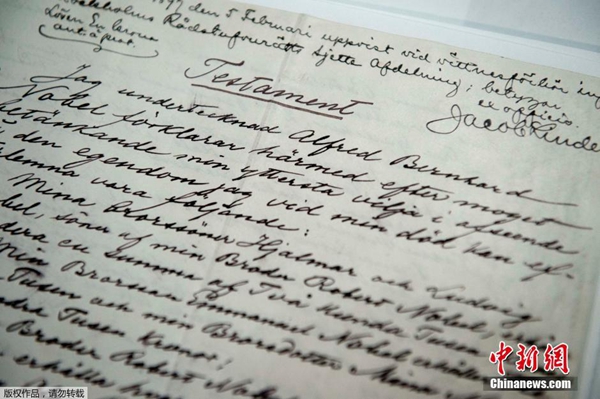 1897 den 5 Februari uppvist vid vittnesförhör inför
Stockholms Rådstufvurätts sjette Afdelning; betygar
Lösen En krona
ex officio.
att öre.
Testament
Jag undertecknad Alfred Bernhard
Nobel förklarar härmed efter moget
betänkande min yttersta vilja i afseende
å den egendom jag vid min död kan ef-
terlemna vara följande:
Mina Brorsöner Hjalmar och Ludvig
Nobel, söner af min Broder Robert Nobel,
en Summa af Två Hundra Tusen
Min Brorson Emmanuel Nobel erhåller
Tusen och min Brorsdotter Mina
Hundra Tusen Kronor;
Broder Robert Nobels
erhålla
中新网
Chinanews.com
版权作品 请勿转载